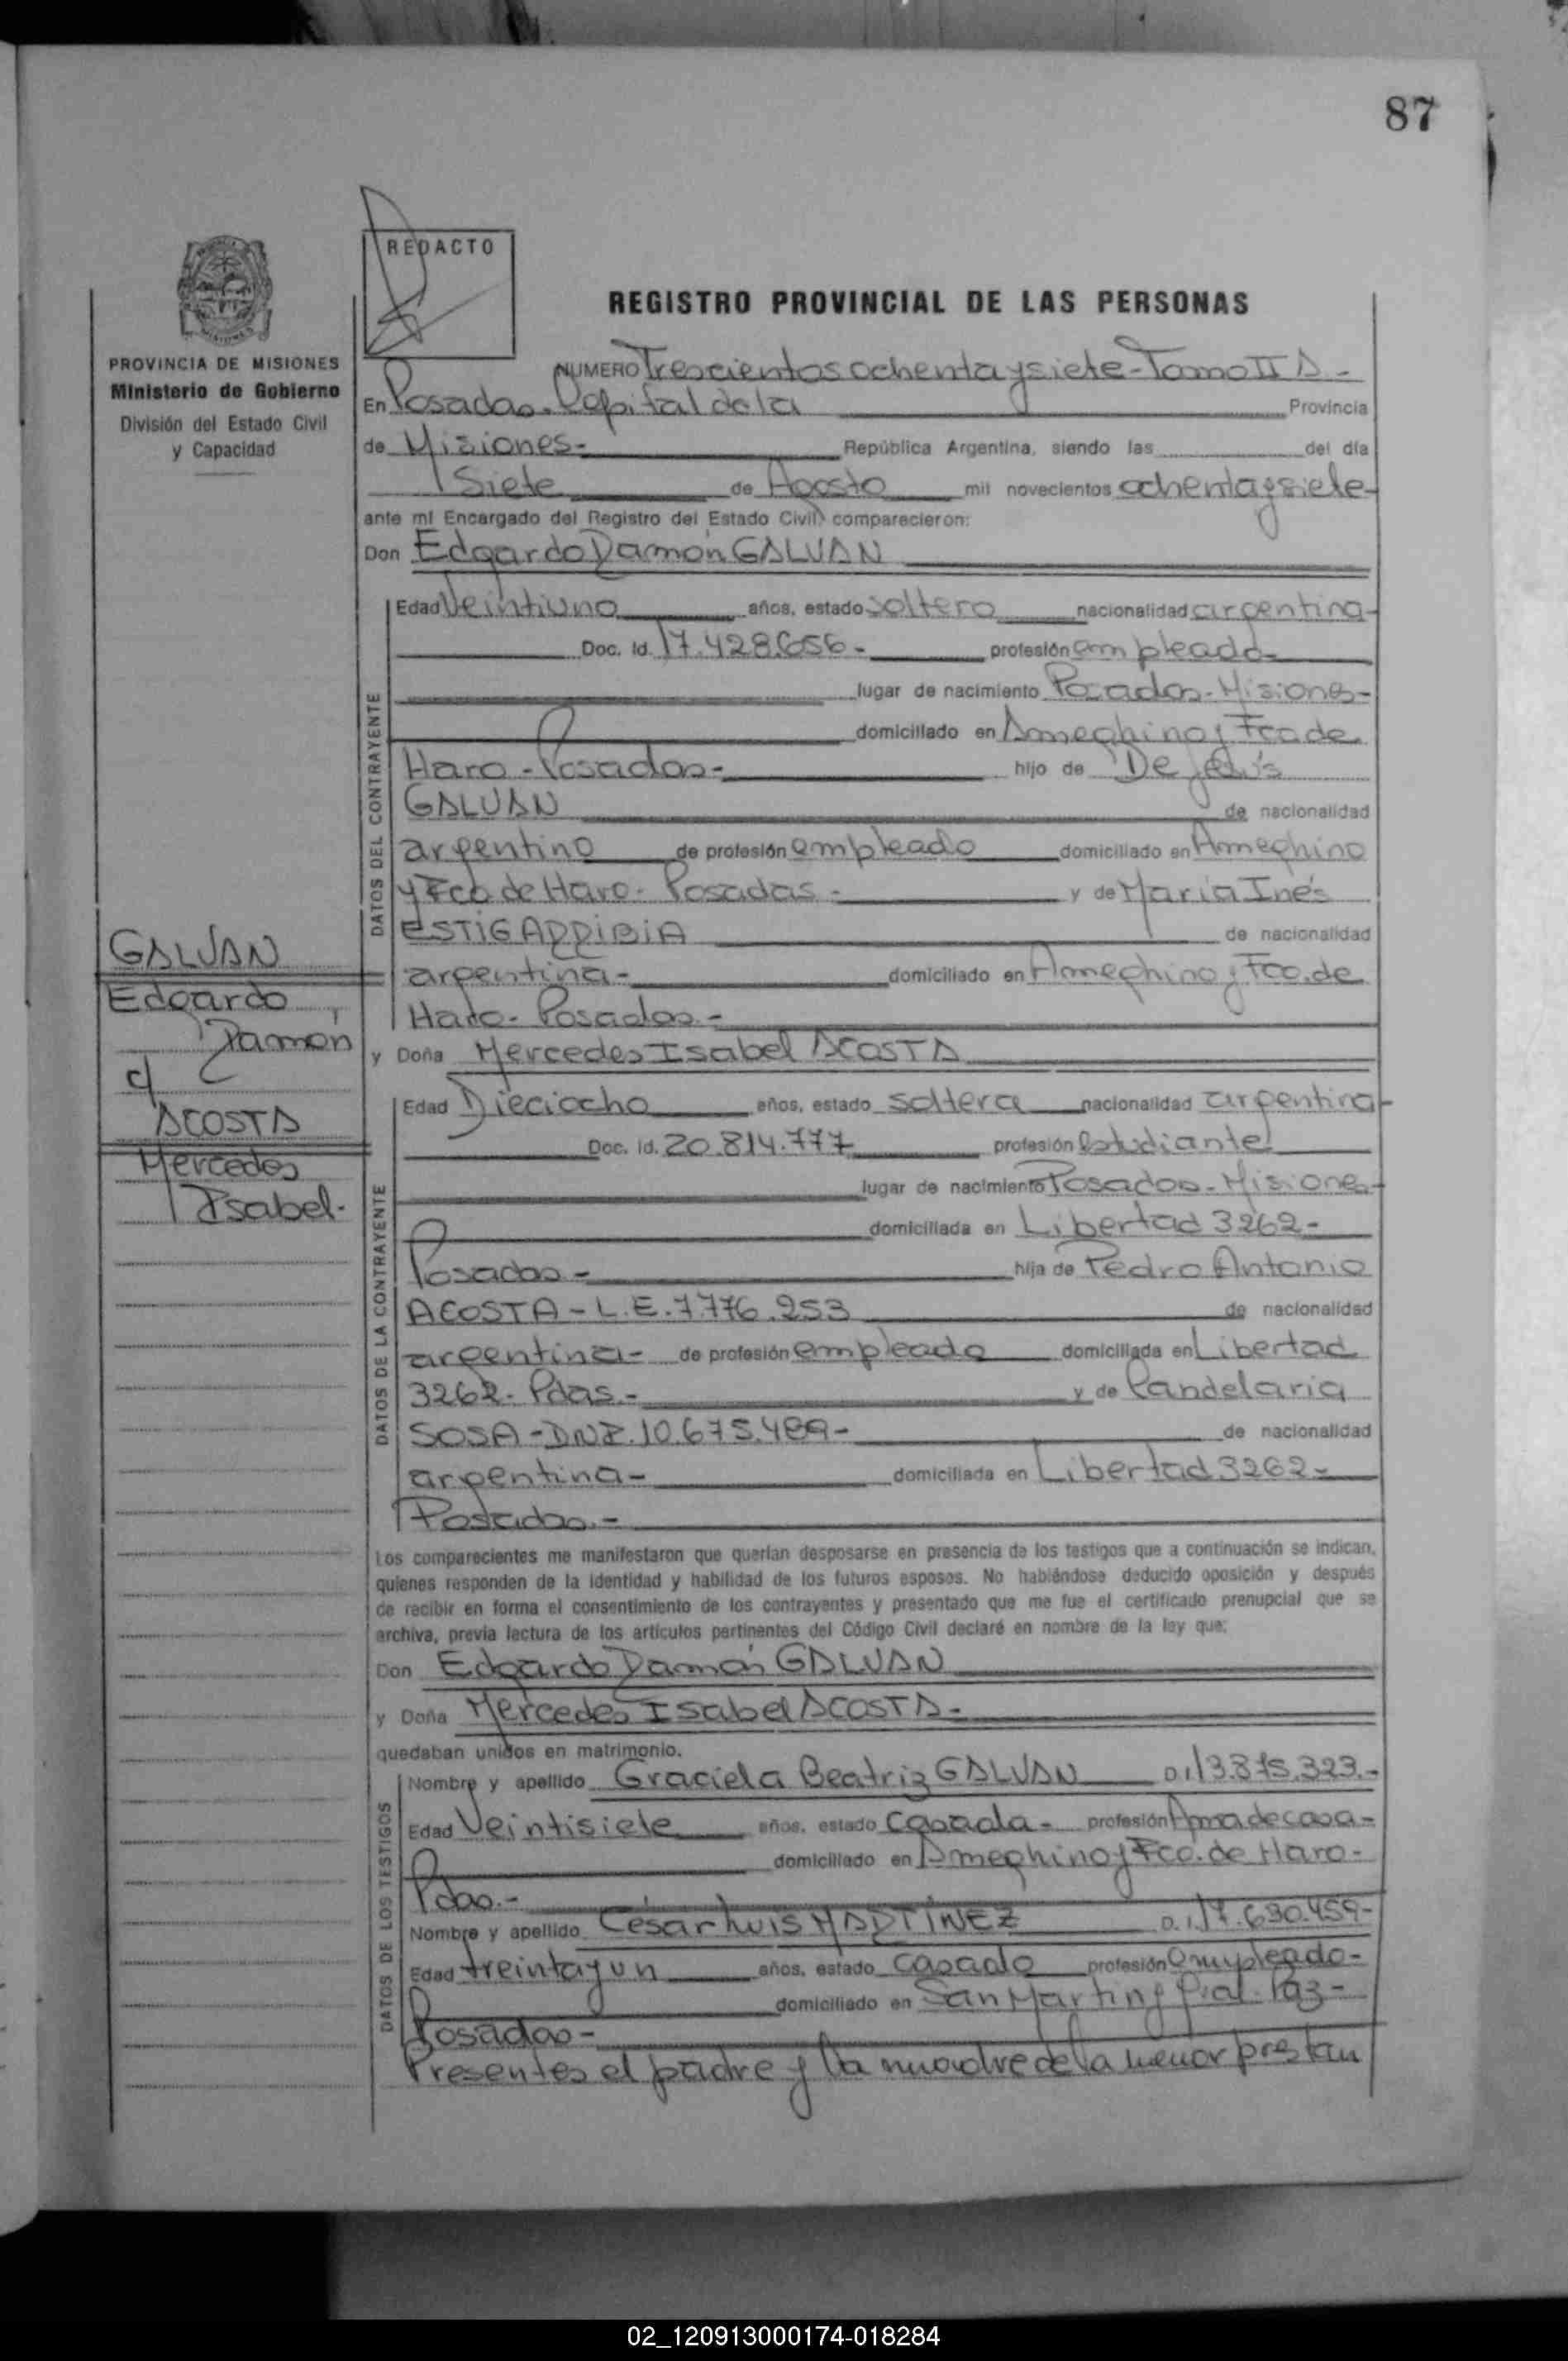 87
REDACTO
REGISTRO PROVINCIAL DE LAS PERSONAS
PROVINCIA DE MISIONES
Ministerio de Gobierno
División del Estado Civil
y Capacidad
NUMERO Trescientos ochenta y siete - Tomo II A -
En Posadas - Capital de la Provincia
de Misiones - República Argentina, siendo las del día
Siete de Agosto mil novecientos ochenta y siete -
ante mí Encargado del Registro del Estado Civil) comparecieron:
Don Edgardo Ramón GALVAN
Edad Veintiuno años, estado soltero nacionalidad argentina -
Doc. Id. 17.428.656 - profesión empleado -
lugar de nacimiento Posadas - Misiones -
domiciliado en Ameghino y Fco de
Haro - Posadas - hijo de De Jesús
GALVAN de nacionalidad
argentino de profesión empleado domiciliado en Ameghino
y Fco de Haro - Posadas - y de María Inés
ESTIGARRIBIA de nacionalidad
argentina - domiciliado en Ameghino y Fco. de
Haro - Posadas -
DATOS DEL CONTRAYENTE
GALVAN
Edgardo
Ramón
c/
ACOSTA
Mercedes
Isabel -
y Doña Mercedes Isabel ACOSTA
Edad Dieciocho años, estado soltera nacionalidad argentina -
Doc. Id. 20.814.777 profesión estudiante
lugar de nacimiento Posadas - Misiones -
domiciliada en Libertad 3262 -
Posadas - hija de Pedro Antonio
ACOSTA - L.E. 7.776.253 de nacionalidad
argentina - de profesión empleado domiciliada en Libertad
3262 - Pdas. - y de Candelaria
SOSA - DNI. 10.675.489 - de nacionalidad
argentina - domiciliada en Libertad 3262 -
Posadas. -
DATOS DE LA CONTRAYENTE
Los comparecientes me manifestaron que querían desposarse en presencia de los testigos que a continuación se indican,
quienes responden de la identidad y habilidad de los futuros esposos. No habiéndose deducido oposición y después
de recibir en forma el consentimiento de los contrayentes y presentado que me fue el certificado prenupcial que se
archiva, previa lectura de los artículos pertinentes del Código Civil declaré en nombre de la ley que:
Don Edgardo Ramón GALVAN
y Doña Mercedes Isabel ACOSTA -
quedaban unidos en matrimonio.
Nombre y apellido Graciela Beatriz GALVAN D.I. 13.875.323. -
Edad Veintisiete años, estado casada - profesión Ama de casa -
domiciliado en Ameghino y Fco. de Haro -
Pdas. -
Nombre y apellido César Luis MARTÍNEZ D.I. 17.630.459 -
Edad treinta y un años, estado casado profesión empleado -
domiciliado en San Martín y Gral. Paz -
Posadas -
DATOS DE LOS TESTIGOS
Presentes el padre y la madre de la menor prestan
02_120913000174-018284